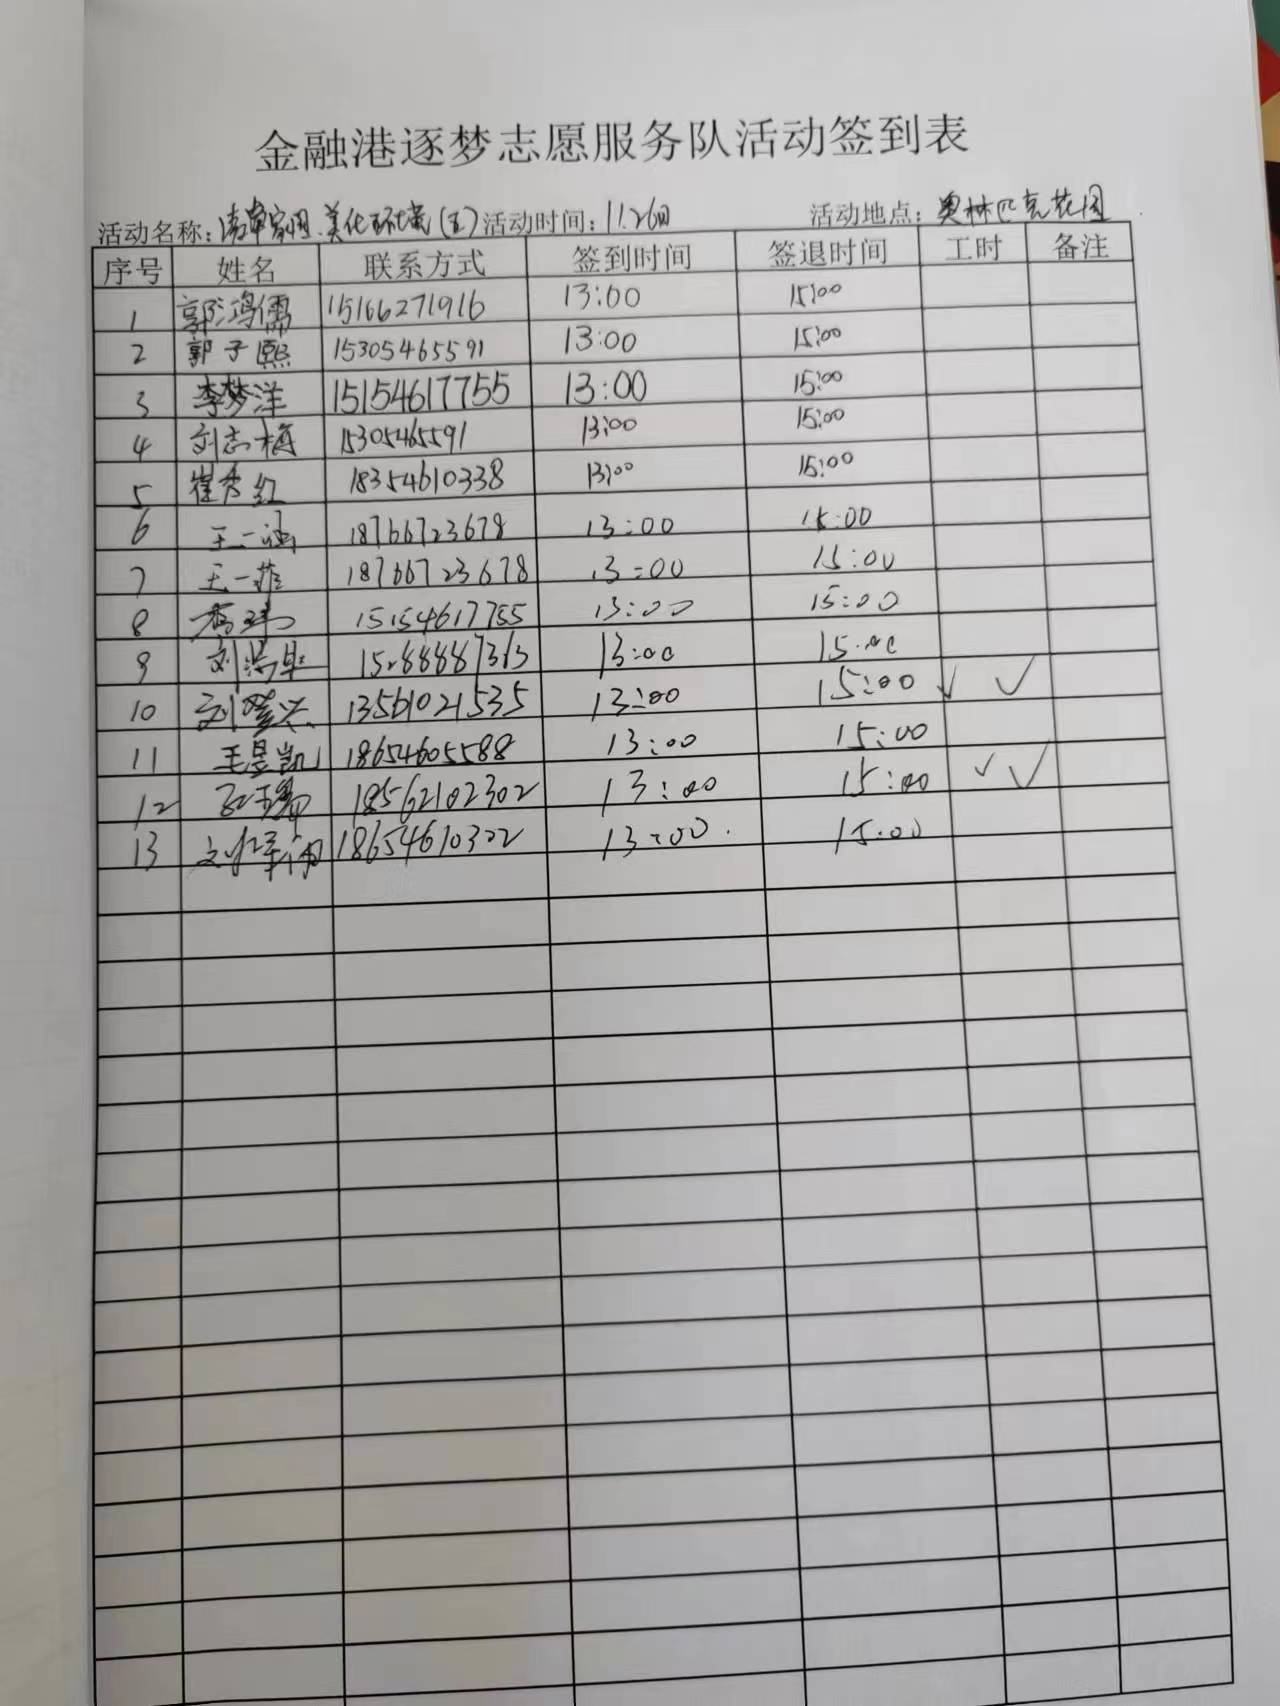 金融港逐梦志愿服务队活动签到表
活动名称：清洁家园.美化环境(五) 活动时间：11.26日 活动地点：奥林匹克花园
序号 姓名 联系方式 签到时间 签退时间 工时 备注
1 郭鸿儒 15166271916 13:00 15:00
2 郭子熙 15305465591 13:00 15:00
3 李梦洋 15154617755 13:00 15:00
4 刘志梅 15305465591 13:00 15:00
5 崔秀红 18354610338 13:00 15:00
6 王一涵 18766723678 13:00 15:00
7 王一菲 18766723678 13:00 15:00
8 15154617755 13:00 15:00
9 13:00 15:00
10 13561021535 13:00 15:00 ✓ ✓
11 王昱凯 18654605588 13:00 15:00
12 18562102302 13:00 15:00 ✓ ✓
13 18654610322 13:00 15:00